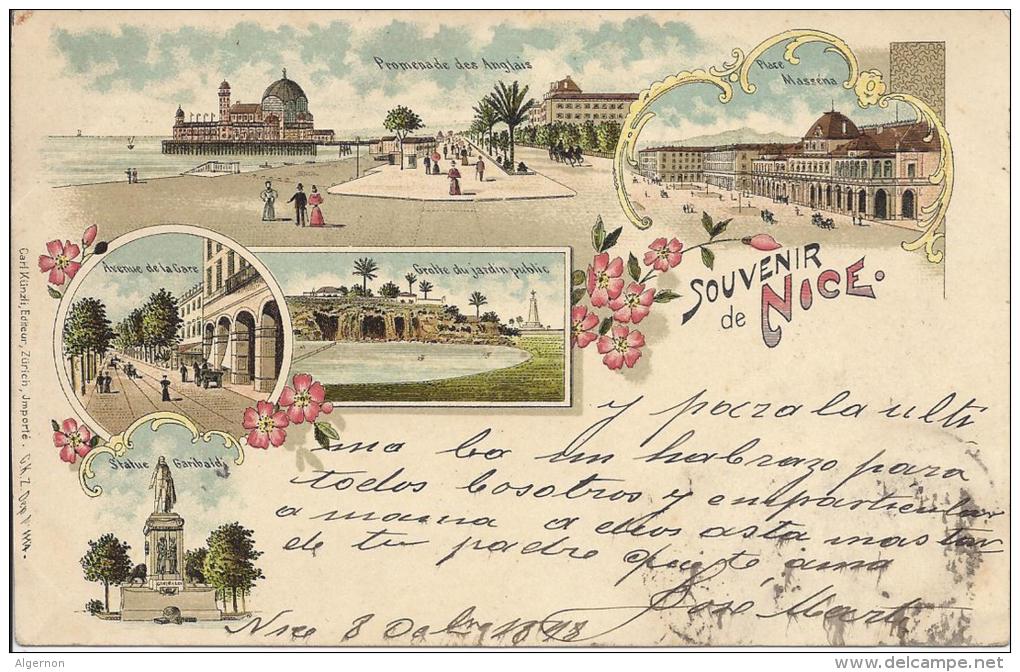 Promenade des Anglais
Place
Masséna
Avenue de la Gare
Grotte du jardin public
SOUVENIR
de NICE.
Statue Garibaldi
GARIBALDI
Carl Künzli, Editeur, Zürich, Importé. C.K.Z.
y para la ulti
ma ba un habrazo para
todos bosotros y enparticular
a mama adios asta mas tar
de tu padre que te ama
José Marti
Nice 8 Octbre 1898
Algernon
delcampe.net